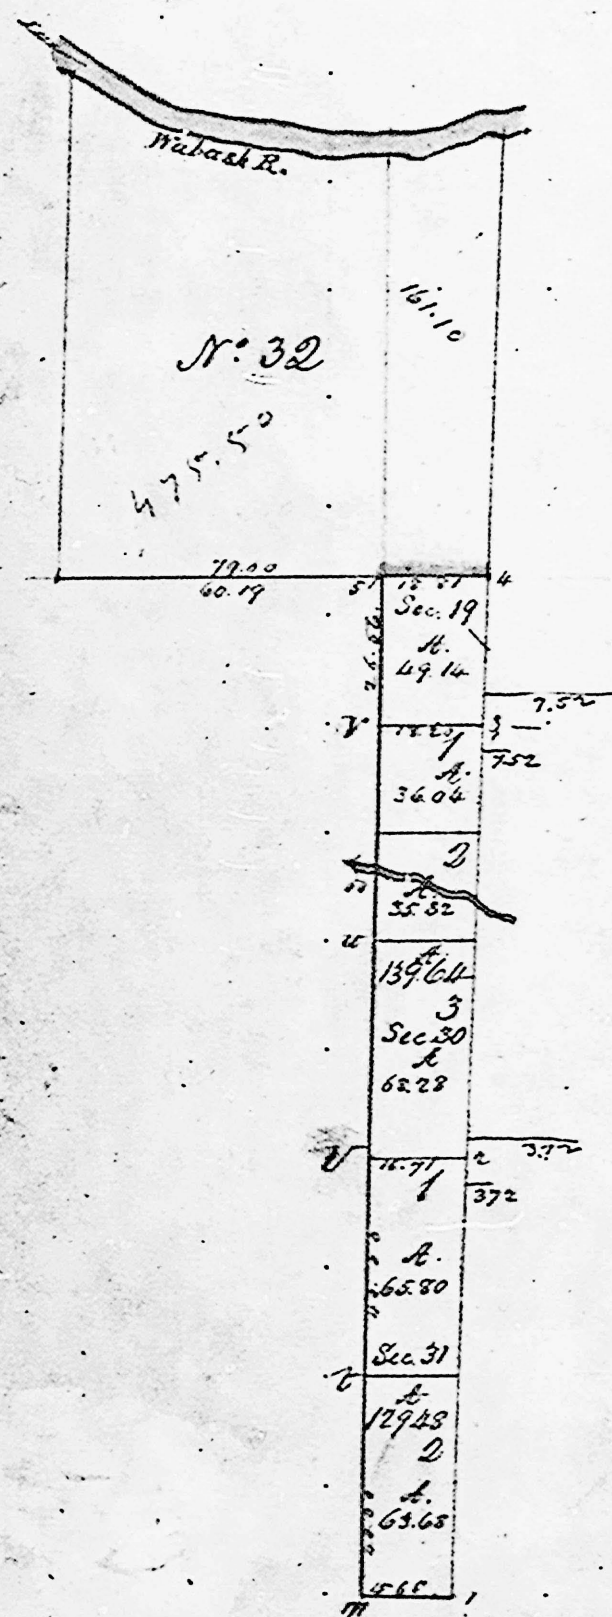 Wabash R.
161.10
No: 32
475.50
79.00
60.19
51
4
Sec. 19
A.
49.14
7.52
V
3
1
752
A.
36.04
2
A.
35.82
u
A
139.64
3
Sec 30
A
68.28
V
16.71
2
3.72
1
372
A.
65.80
Sec. 31
t
A
129.48
2
A.
63.68
1568
m
1